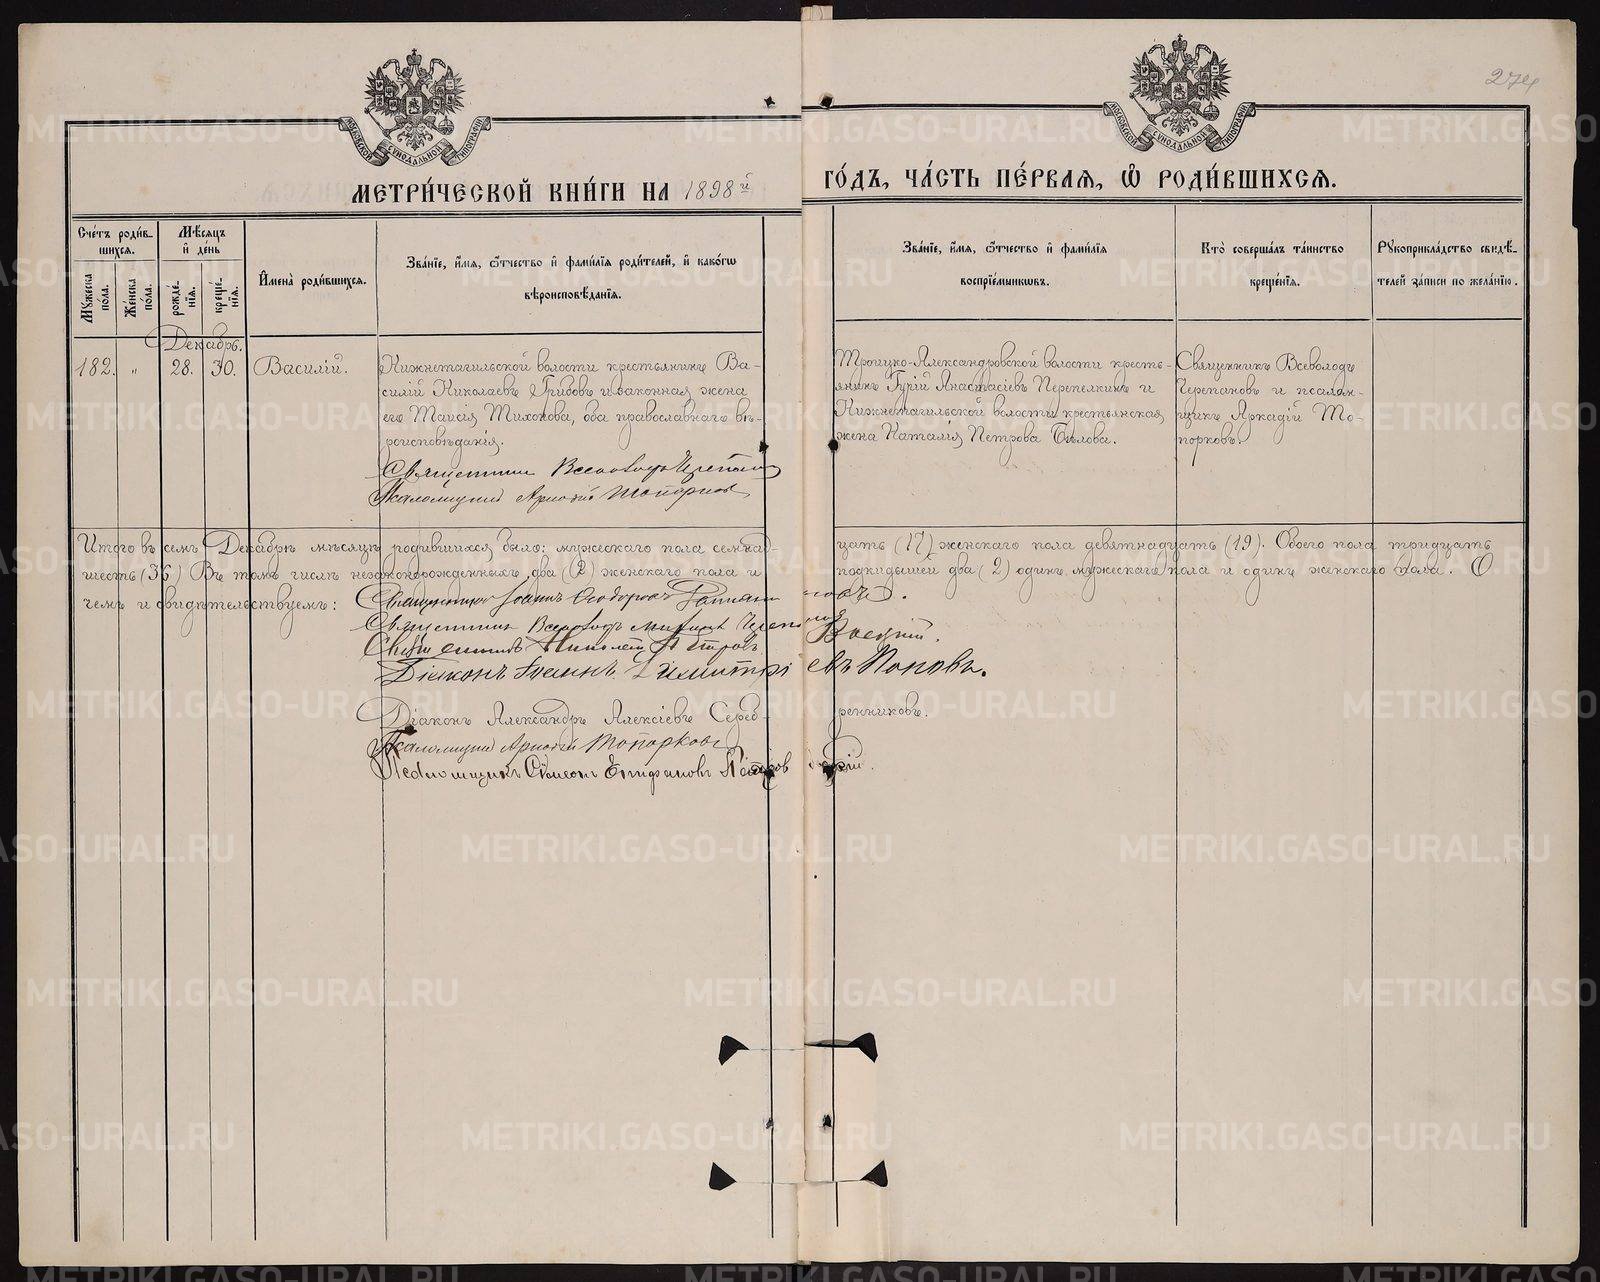 274
МОСКОВСКОЙ СѴНОДАЛЬНОЙ ТИПОГРАФІИ
МОСКОВСКОЙ СѴНОДАЛЬНОЙ ТИПОГРАФІИ
МЕТРИ́ЧЕСКОЙ КНИ́ГИ НА 1898й
ГО́ДЪ, ЧА́СТЬ ПЕ́РВАЯ, Ѡ҆ РОДИ́ВШИХСЯ.
Сче́тъ роди́в-
шихся.
Мꙋ́жеска пола.
Же́нска по́ла.
Мѣ́сяцъ
и҆ де́нь
рожде́-
нїя.
креще́-
нїя.
И҆мена̀ роди́вшихся.
Зва́нїе, и҆́мя, ѻ҆́тчество и҆ фами́лїя роди́телей, и҆ како́гѡ
вѣроисповѣ́данїя.
Зва́нїе, и҆́мя, ѻ҆́тчество и҆ фами́лїя
воспрїе́мникѡвъ.
Кто̀ соверша́лъ та́инство
креще́нїя.
Рꙋкоприкла́дство свидѣ́-
телей за́писи по жела́нїю.
Декабрь.
182. „ 28. 30. Василій.
Нижнетагильской волости крестьянинъ Ва-
силій Николаевъ Грибовъ и законная жена
его Таисія Тихонова, оба православнаго вѣ-
роисповѣданія.
Священникъ Всеволодъ Черепановъ
Псаломщикъ Аркадій Топорковъ
Троицко-Александровской волости кресть-
янинъ Гурій Анастасіевъ Перепелкинъ и
Нижнетагильской волости крестьянская
жена Наталія Петрова Бѣлова.
Священникъ Всеволодъ
Черепановъ и псалом-
щикъ Аркадій То-
порковъ.
Итого въ семъ Декабрѣ мѣсяцѣ родившихся было: мужескаго пола семнад-цать (17) женскаго пола девятнадцать (19). Обоего пола тридцать
шесть (36) Въ томъ числѣ незаконорожденныхъ два (2) женскаго пола и подкидышей два (2) одинъ мужескаго пола и одинъ женскаго пола. О
чемъ и свидѣтельствуемъ:
Священникъ Іоаннъ Ѳеодоровъ
Священникъ Всеволодъ Черепановъ
Священникъ
Діаконъ Іоаннъ Димитріевъ Поповъ.
Діаконъ Александръ Алексіевъ Серебренниковъ.
Псаломщикъ Аркадій Топорковъ
Псаломщикъ Сѵмеонъ Епифановъ
METRIKI.GASO-URAL.RU